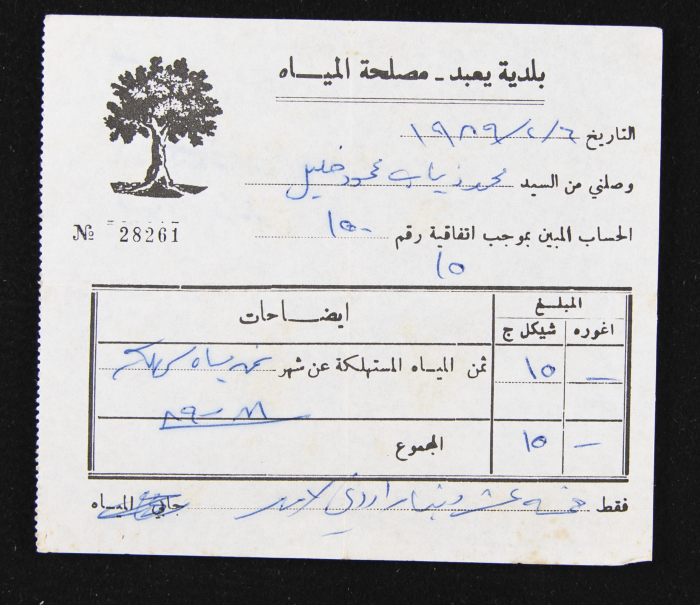 بلدية يعبد - مصلحة الميـــاه
التاريخ ١٩٨٩/٢/٦
وصلني من السيد محمد ذياب محمود خليل
№ 28261
الحساب المبين بموجب اتفاقية رقم ١٥٠
١٥
المبلـغ ايضـــاحات
اغوره شيكل ج
— ١٥ ثمن الميـاه المستهلكة عن شهر ثمن مياه
٨٩
— ١٥ المجموع
فقط خمسة عشر دينار اردني لاغير
جابي الميـاه